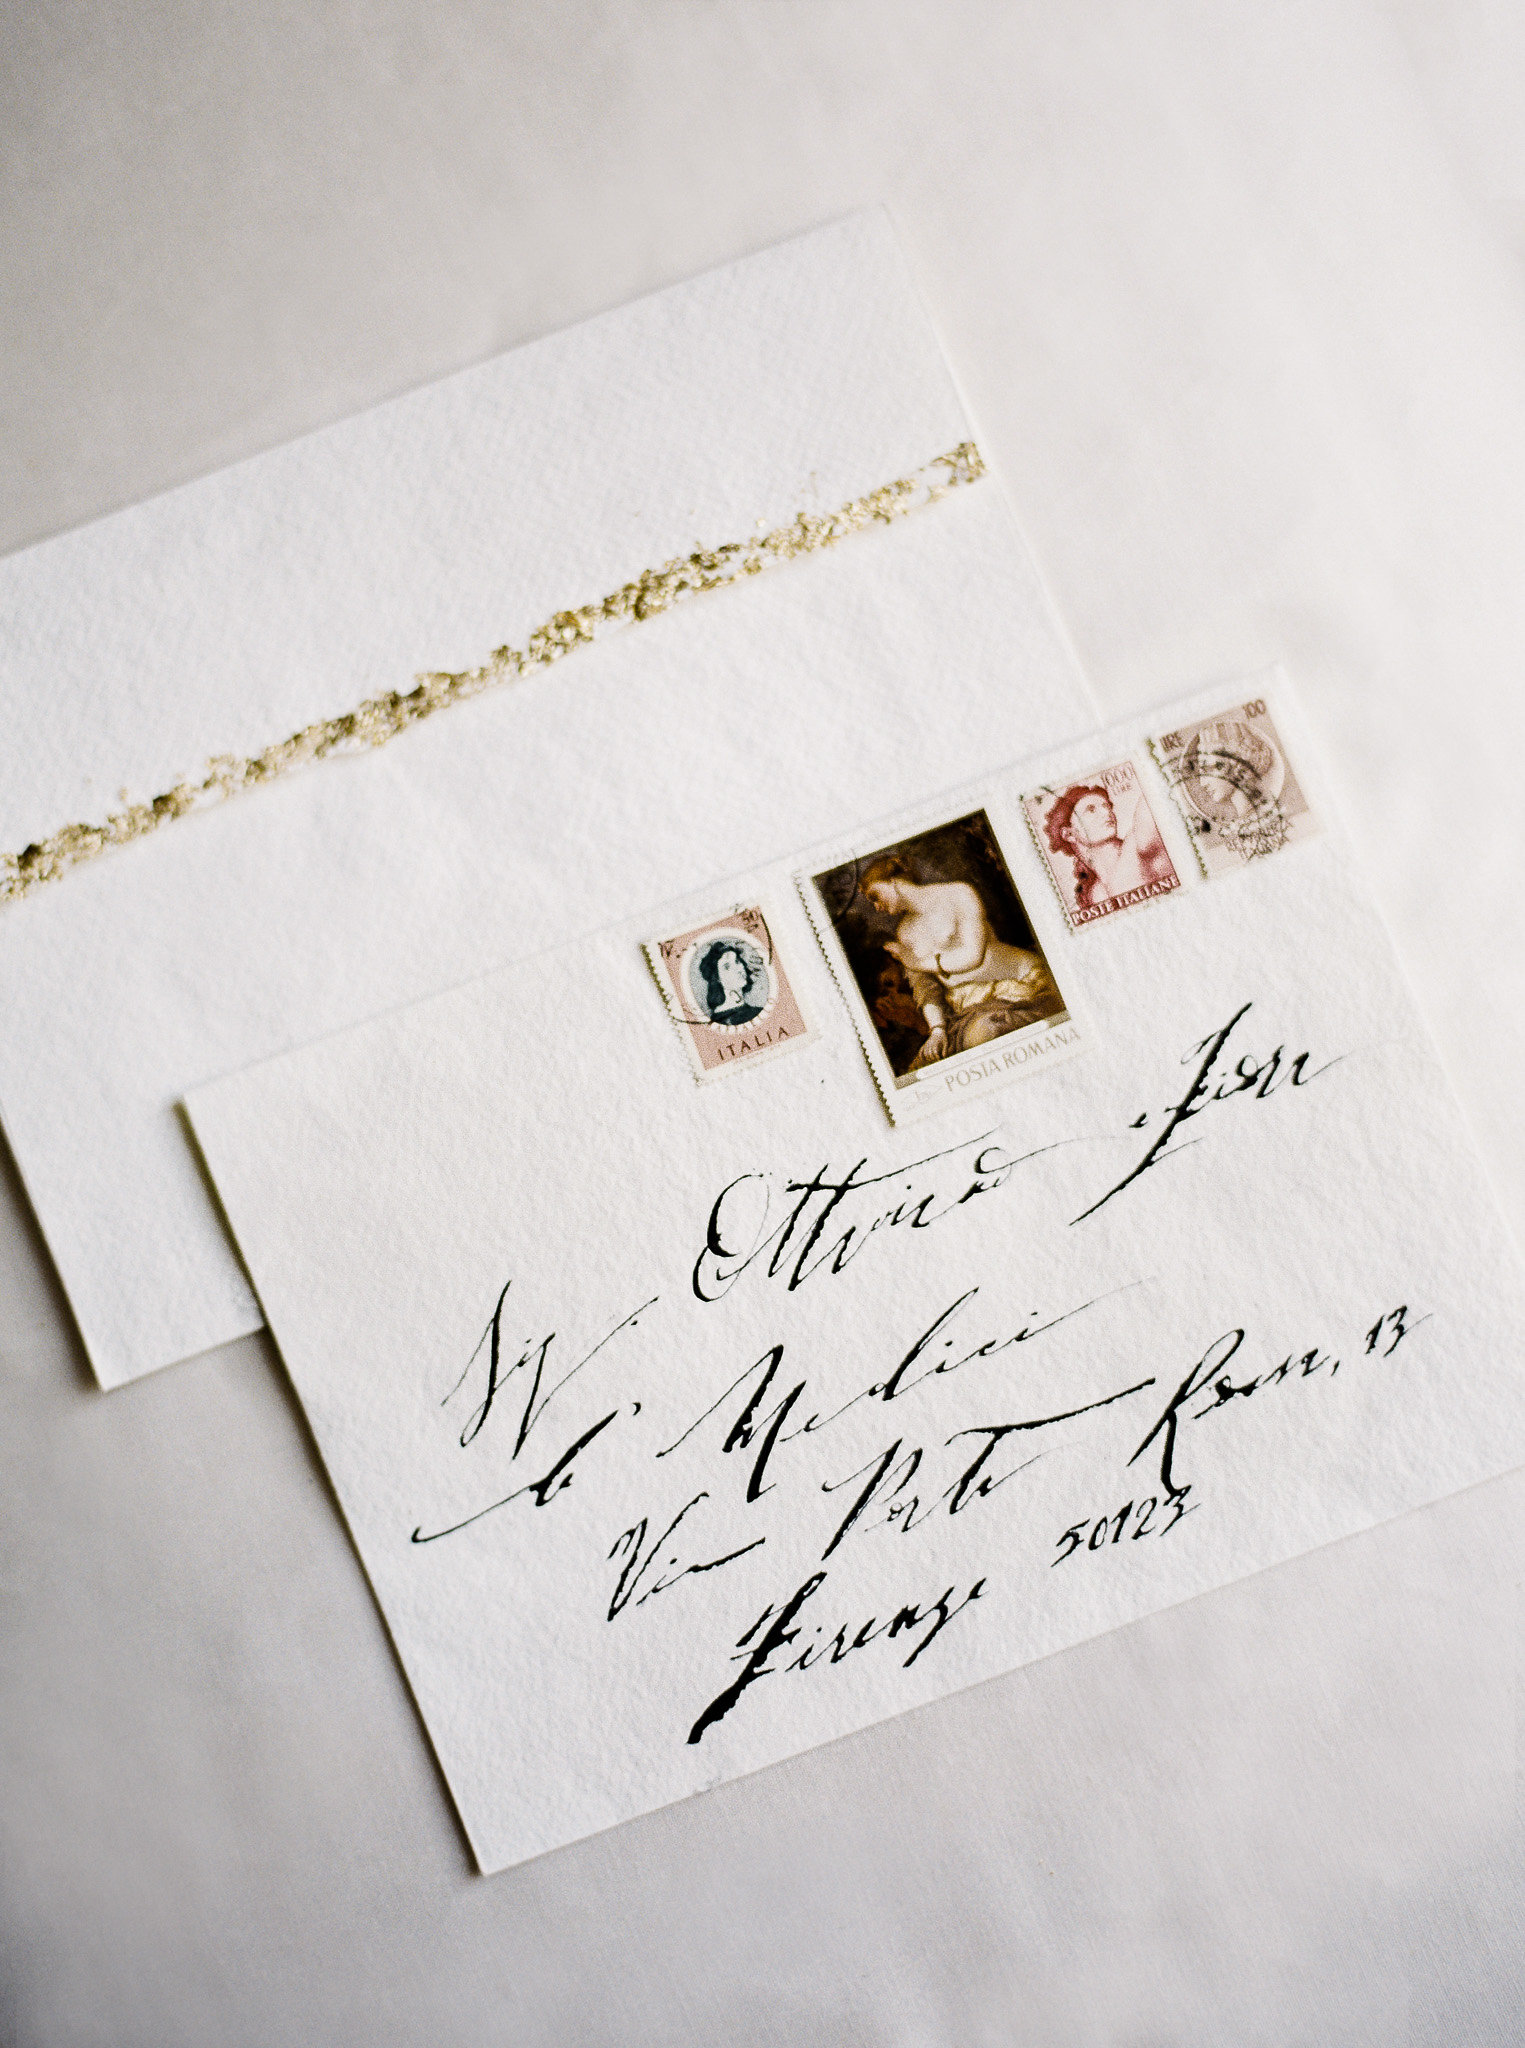 LIRE 100
1000 LIRE
POSTE ITALIANE
50
ITALIA
POSTA ROMANA
Sig. Ottaviano Fiori
de' Medici
Via Porta Rossa, 13
Firenze 50123